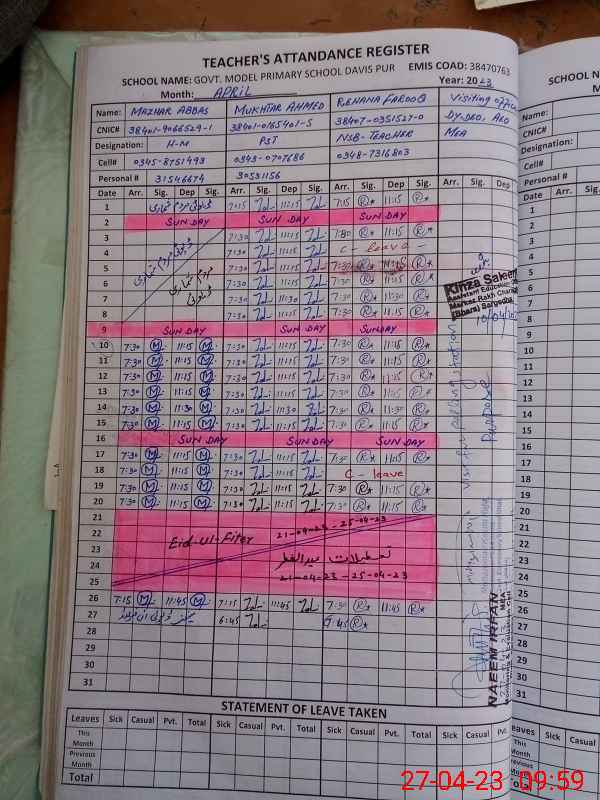 TEACHER'S ATTANDANCE REGISTER
SCHOOL NAME: GOVT. MODEL PRIMARY SCHOOL DAVIS PUR EMIS COAD: 38470763
Month: APRIL Year: 2023
Name: MAZHAR ABBAS MUKHTAR AHMED REHANA FAROOQ Visiting office
CNIC# 38401-9066529-1 38401-0165401-5 38407-0351527-0 Dy.DEO, AEO
Designation: H-M PST NSB-TEACHER MEA
Cell# 0345-8751493 0343-0707686 0348-7316803
Personal # 31546674 30531156
Date Arr. Sig. Dep Sig. Arr. Sig. Dep Sig. Arr. Sig. Dep Sig. Arr. Sig. Dep
1 7:15 11:15 7:15 R 11:15 R
2 SUNDAY SUNDAY SUNDAY
3 7:30 11:15 7:30 R 11:15 R
4 7:30 11:15 C - leave -
5 7:30 11:15 7:30 R 11:15 R
6 7:30 11:15 7:30 R 11:15 R
7 7:30 11:30 7:30 R 11:30 R
8 7:30 11:15 7:30 R 11:15 R
9 SUNDAY SUNDAY SUNDAY
10 7:30 M 11:15 M 7:30 11:15 7:30 R 11:15 R
11 7:30 M 11:15 M 7:30 11:15 7:30 R 11:15 R
12 7:30 M 11:15 M 7:30 11:15 7:30 R 11:15 R
13 7:30 M 11:15 M 7:30 11:15 7:30 R 11:15 R
14 7:30 M 11:30 M 7:30 11:30 7:30 R 11:30 R
15 7:30 M 11:15 M 7:30 11:15 7:30 R 11:15 R
16 SUNDAY SUNDAY SUNDAY
17 7:30 M 11:15 M 7:30 11:15 7:30 R 11:15 R
18 7:30 M 11:15 M 7:30 11:15 C - leave
19 7:30 M 11:15 M 7:30 11:15 7:30 R 11:15 R
20 7:30 M 11:15 M 7:30 11:15 7:30 R 11:15 R
21
22 Eid-ul-Fiter 21-04-23 - 25-04-23
23 تعطیلات عیدالفطر
24 21-04-23 - 25-04-23
25
26 7:15 M 11:45 M 7:15 11:45 7:30 R 11:45 R
27 6:45 7:45 R
28
29
30
31
Kinza Saleem
Assistant Education
Markaz Rakh Chara
(Bhera) Sargodha
visit for polling station
Purpose
NAEEM IRFAN
MEA
STATEMENT OF LEAVE TAKEN
Leaves Sick Casual Pvt. Total Sick Casual Pvt. Total Sick Casual Pvt. Total Sick Casual Pvt. Total
This Month
Previous Month
Total
SCHOOL N
Name:
CNIC#
Designation:
Cell#
Personal #
Date Arr. Sig.
1
2
3
4
5
6
7
8
9
10
11
12
13
14
15
16
17
18
19
20
21
22
23
24
25
26
27
28
29
30
31
Leaves Sick Casual
This Month
Previous Month
27-04-23 09:59